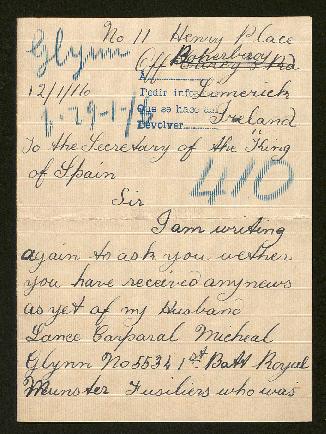 No 11 Henry Place
Glynn
Off
12/1/16
Limerick
Pedir info
Que se hace
Ireland
Devolver
To the Secretary of the King
of Spain
410
Sir
I am writing
again to ask you wether
you have received any news
as yet of my Husband
Lance Corparal Micheal
Glynn No 5534 1st Batt Royal
Munster Fusiliers who was